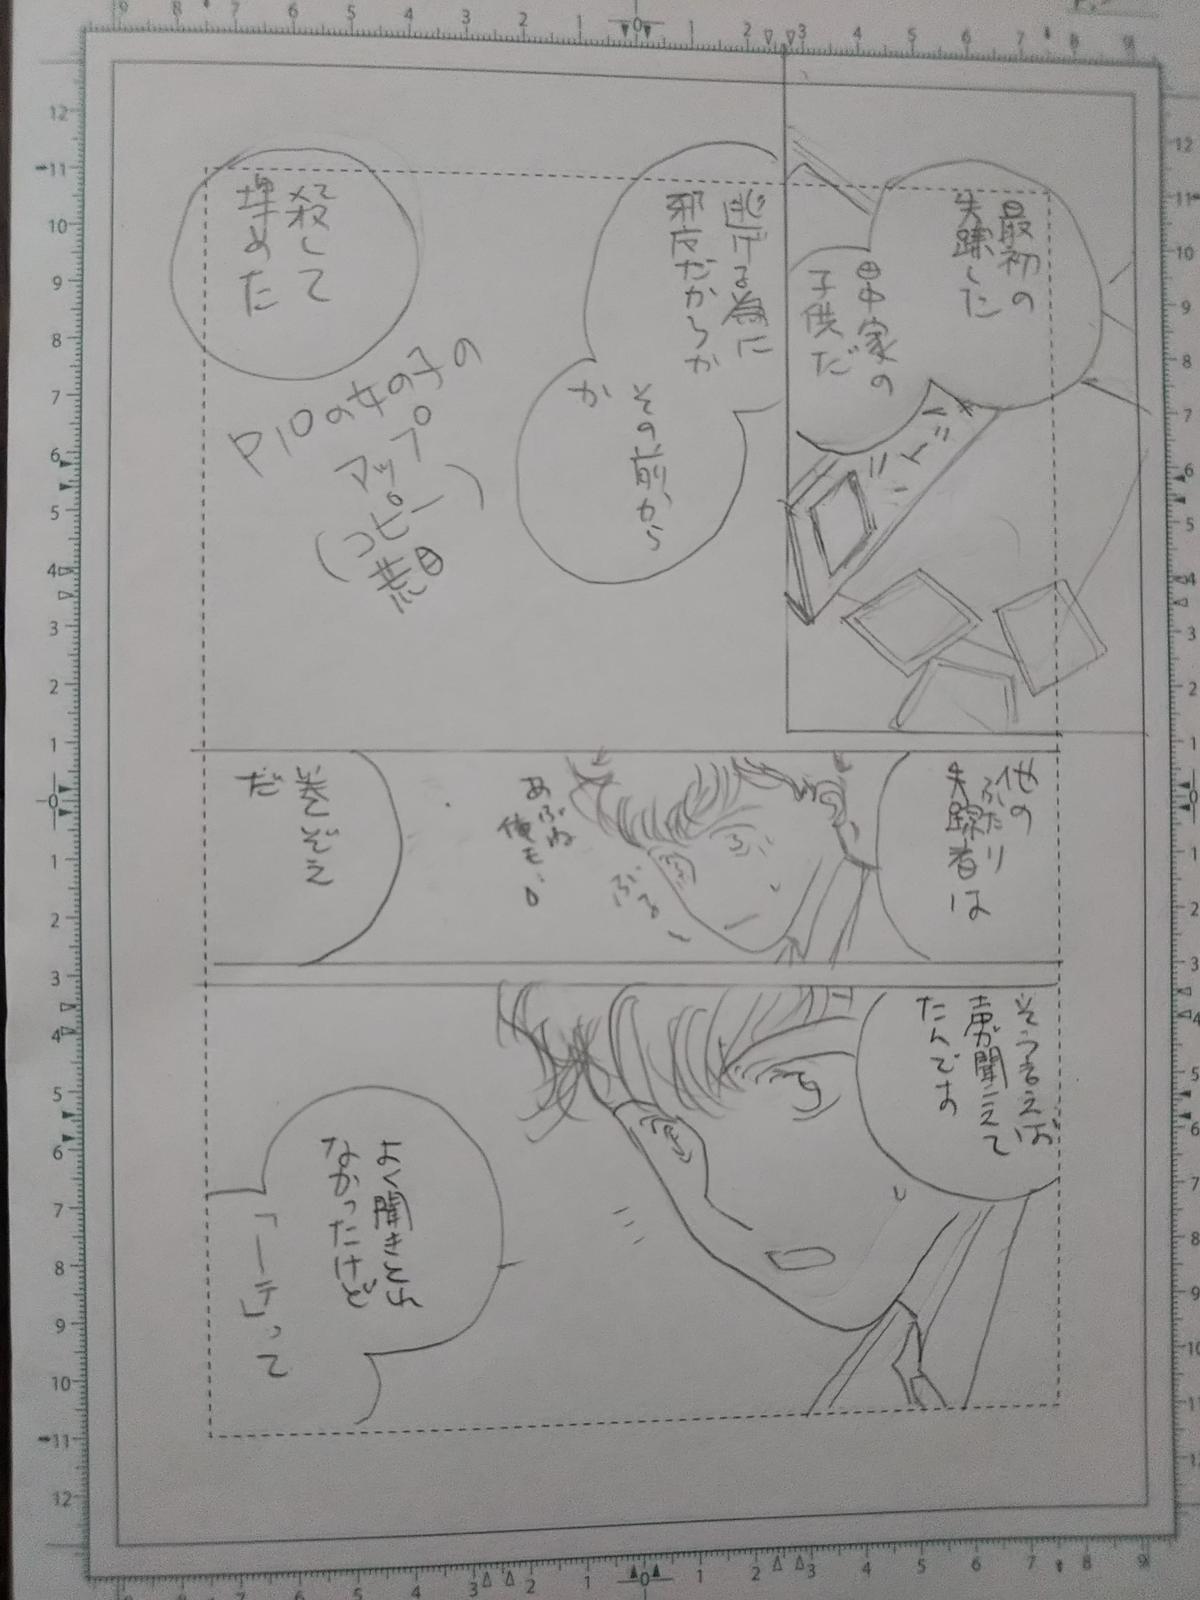 最初の
失踪した
畠中家の
子供だ
逃げる為に
邪魔だからか
その前から
か
殺して
埋めた
P10の女の子の
マップ
(コピー)
他の
ふたり
失踪者は
あぶね
俺も
ぶる
巻ぞえ
だ
そう言えば
声が聞こえて
たんです
よく聞きとれ
なかったけど
「ーテ」って